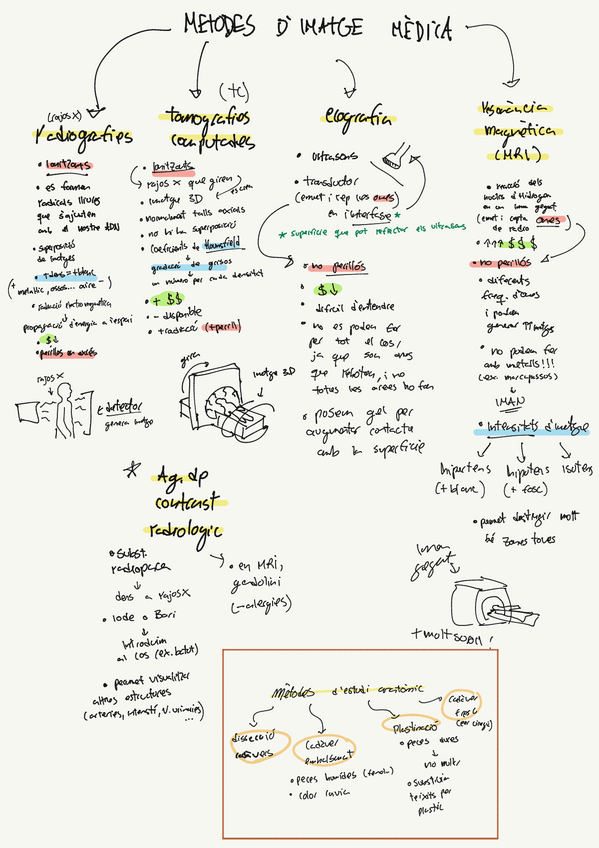 METODES D'IMATGE MÈDICA
(rajos X)
radiografies
• Ionitzants
• es formen
radicals lliures
que s'ajunten
amb el nostre ADN
• superposició
de imatges
• + dens = + blanc
(+ metal·lic, ossos... aire -)
• radiació electromagnètica
propagació d'energia a l'espai
• $↓
• perillos en excés
rajos X
detector
genera imatge
(TC)
tomografies
computades
• Ionitzants
rajos X que giren)
• imatge 3D
• normalment talls axials
• no hi ha superposició
Coeficients de Hounsfield
↓
gradació de grisos
↓
un número per cada densitat
• + $$
• - disponible
• + radiació (+ perill)
gira
imatge 3D
ecografia
• ultrasons
• transductor
(emet i rep les ones)
en interfase *
* superficie que pot reflectir els ultrasons
• no perillós
• $↓
• dificil d'entendre
• no es poden fer
per tot el cos,
ja que son ones
que reboten, i no
totes les arees ho fan
• posem gel per
augmentar contacte
amb la superficie
Resonància
magnètica
(MRI)
• reacció dels
nuclis d'Hidrogen
en un iman gegant
(emet i capta ones
de radio)
• ↑↑↑ $$$
• no perillós
• diferents
freq. d'ones
i poden
generar ↑↑ imatges
• no poden fer
amb metalls!!!
(ex. marcapassos)
↓
IMAN
• Intensitats d'imatge
hipertens
(+ blanc)
hipotens
(+ fosc)
isotens
• permet distingir molt
bé zones toves
Iman
gegant
+ molt soroll!
* Ag. de
contrast
radiologic
• subst.
radiopaca
↓
dens a rajos X
• Iode o Bari
↓
Introduim
al cos (ex. batut)
• permet visualitzar
altres estructures
(arteries, intestí, v. urinaries)
...
→ • en MRI,
gadolini
(- alergies)
Mètodes d'estudi anatòmic
dissecció
cadàvers
Cadàver
embalsamat
• peces humides (fenol)
• color canvia
Plastinació
• peces dures
↓
no molt
• substituïm
teixits per
plàstic
Cadàver
fresc
(per cirurgi)